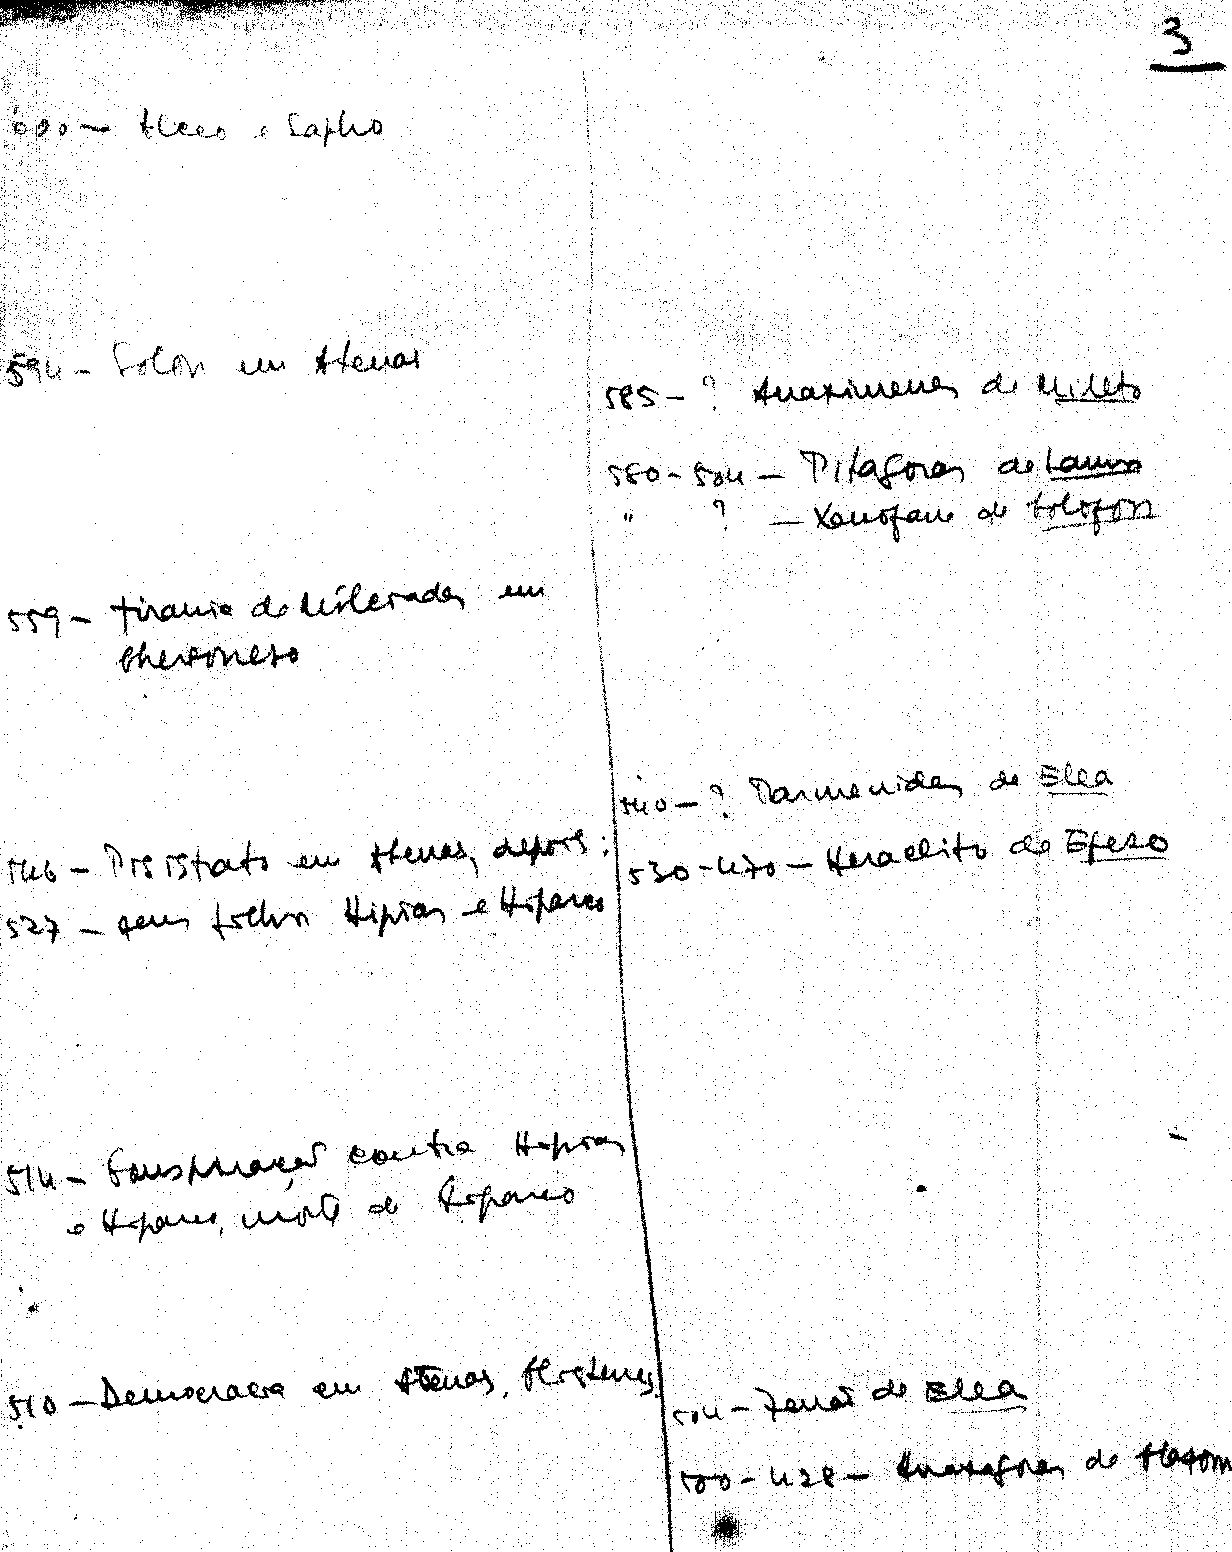 3
600 - Alceo e Sapho
594 - Solon em Atenas
585 - ? Anaximenes de Mileto
580-504 - Pitagoras de Samos
" ? - Xenofane de Colofon
559 - Tirania de Milciades em
Chersoneso
540 - ? Parmenides de Elea
546 - Pisistrato em Atenas, depois:
530-470 - Heraclito de Efeso
527 - seus filhos Hipias e Hiparco
514 - Conspiração contra Hipias
e Hiparco, morte de Hiparco
510 - Democracia em Atenas, Clistenes.
504 - Zenão de Elea
500-428 - Anaxagoras de Clazom